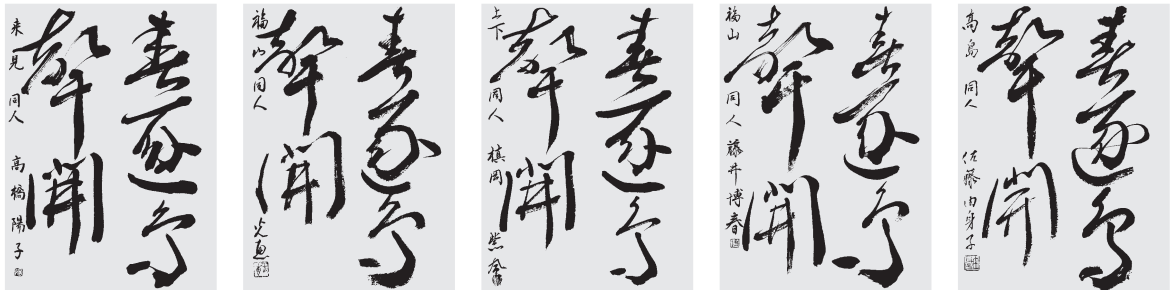 春逐鳥
聲開
来見 同人 高橋陽子
春逐鳥
聲開
福山同人 光恵
春逐鳥
聲開
上下 同人 槙岡
春逐鳥
聲開
福山 同人 藤井博春
春逐鳥
聲開
高島 同人 佐藤由身子